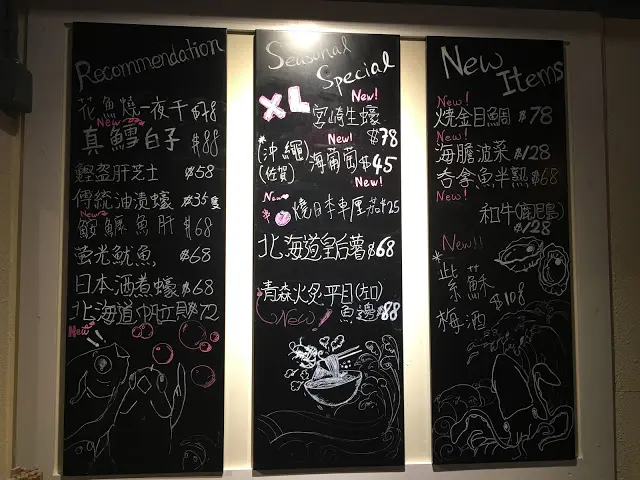 Recommendation
花魚燒一夜干 $78
New
真鱈白子 $88
鰹盔肝芝士 $58
傳統油漬蠔 $35隻
New
鮟鱇魚肝 $68
螢光魷魚 $68
日本酒煮蠔 $68
北海道帆立貝 $72
New
Seasonal
Special
New!
XL 宮崎生蠔
$78
New!
(沖繩) 海葡萄 $45
(佐賀)
New!
New
燒日本車厘茄 $25
北海道皇后薯 $68
青森火炙平目(左口)
魚邊 $88
New!
New
Items
New!
燒金目鯛 $78
New!
海膽菠菜 $128
吞拿魚半熟 $68
New!
和牛(鹿兒島)
$128
New!!
紫蘇
梅酒
$108